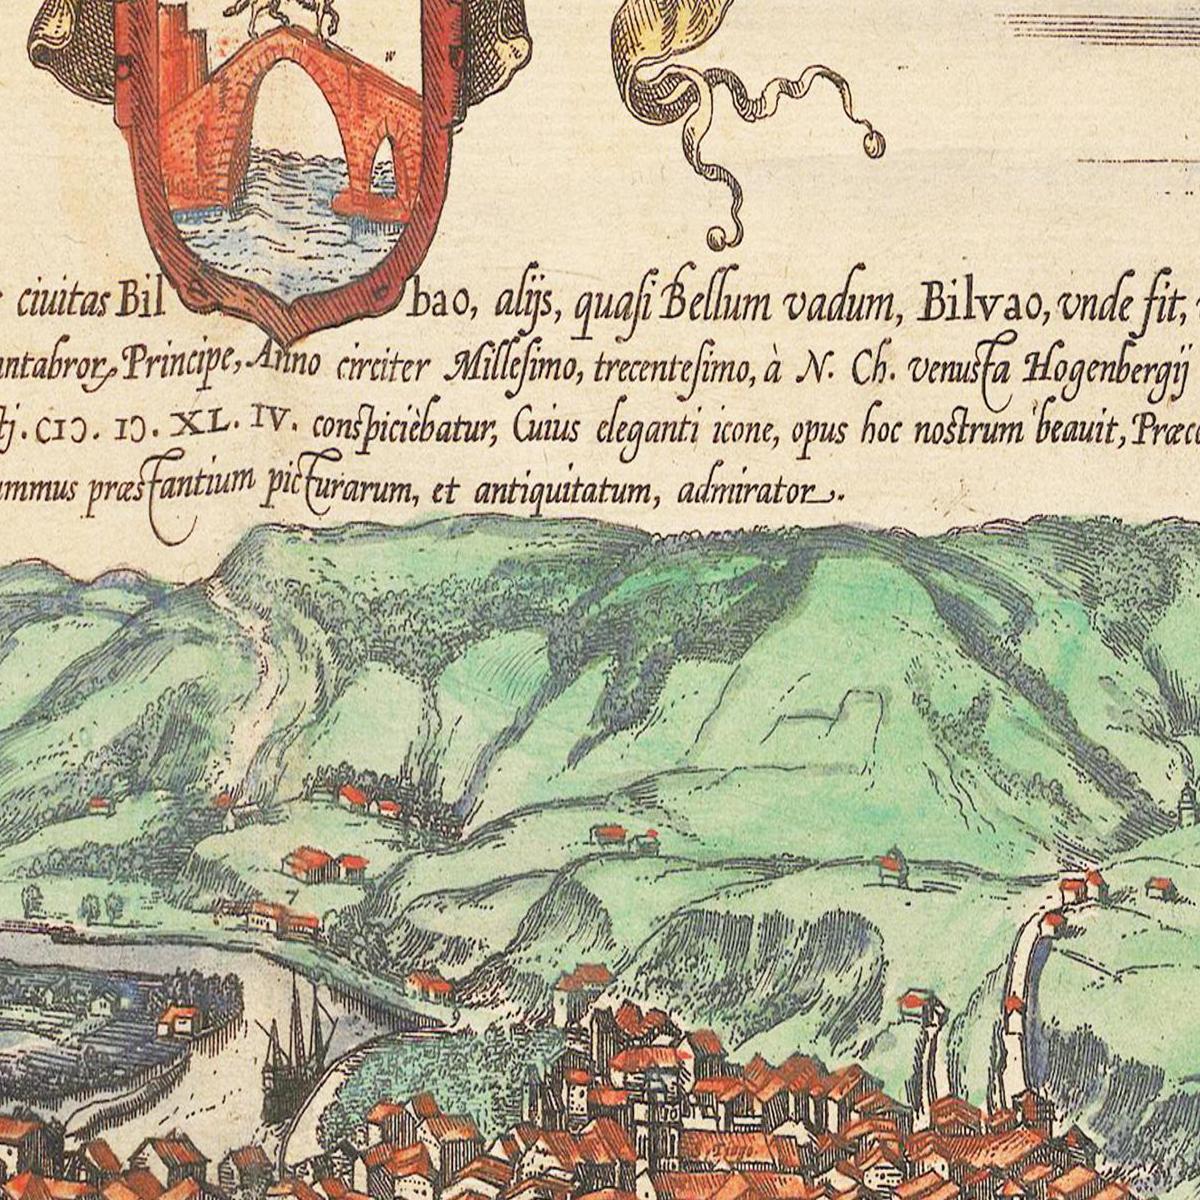 ciuitas Bil bao, alijs, quasi Bellum vadum, Bilvao, vnde fit,
antabror, Principe, Anno circiter Millesimo, trecentesimo, à N. Ch. venusta Hogenbergij
tj. CIƆ. IƆ. XL. IV. conspiciebatur, Cuius eleganti icone, opus hoc nostrum beauit, Præce
ummus præstantium picturarum, et antiquitatum, admirator.